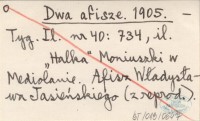 Dwa afisze. 1905. -
Tyg. Il. nr 40: 734, il.
„Halka" Moniuszki w
Mediolanie. Afisz Władysła-
wa Jasieńskiego (z reprod.)